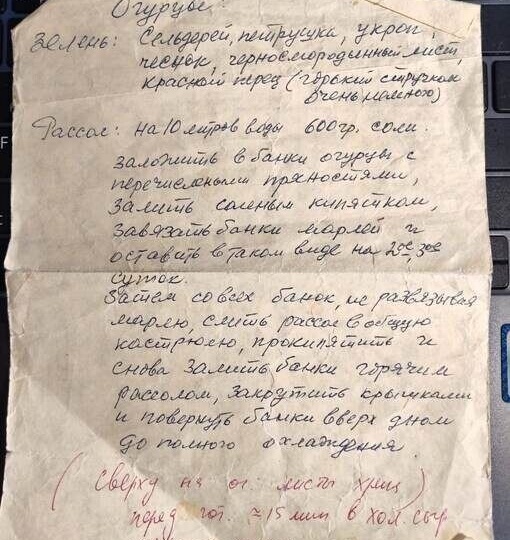 Огурцы:
Зелень: Сельдерей, петрушка, укроп,
чеснок, черносмородынный лист,
красный перец (горький стручком
очень немного)
Рассол: на 10 литров воды 600гр. соли.
заложить в банки огурцы с
перечислеными пряностями,
залить соленым кипятком,
завязать банки марлей и
оставить в таком виде на 2ое, 3ое
суток.
Затем со всех банок, не развязывая
марлю, слить рассол в общую
кастрюлю, прокипятить и
снова залить банки горячим
рассолом, закрутить крышками
и повернуть банки вверх дном
до полного охлаждения.
(сверху на ог. листы хрен)
перед гот. ≈15 мин в хол. сыр.